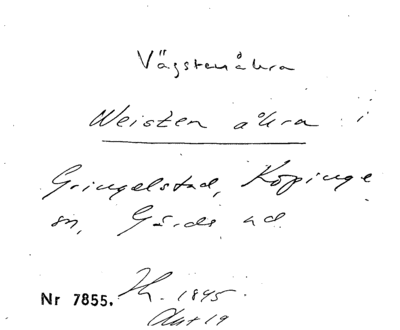 Vägstenåkra
Weisten åkra i
Gringelstad, Köpinge
sn, Gärds hd
Nr 7855. Th. 1845.
Akt 19